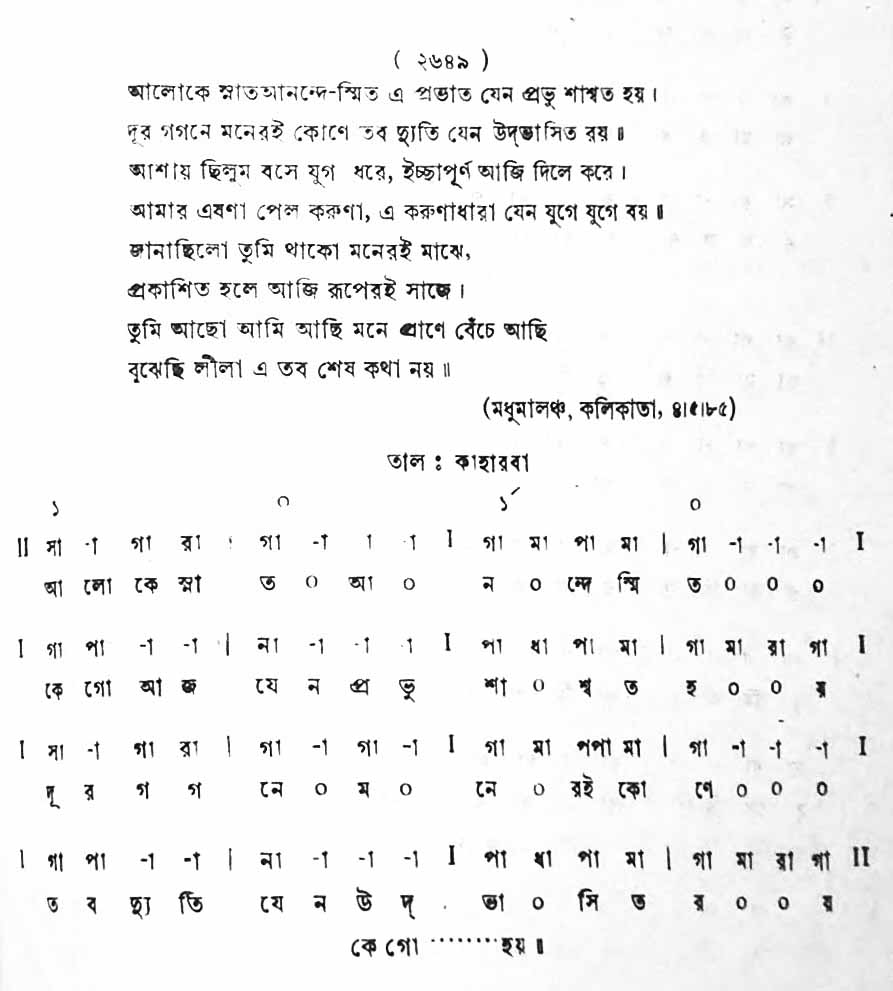 ( ২৬৪৯ )
আলোকে স্নাতআনন্দে-স্মিত এ প্রভাত যেন প্রভু শাশ্বত হয়।
দূর গগনে মনেরই কোণে তব দ্যুতি যেন উদ্ভাসিত রয়॥
আশায় ছিলুম বসে যুগ ধরে, ইচ্ছাপূর্ণ আজি দিলে করে।
আমার এষণা পেল করুণা, এ করুণাধারা যেন যুগে যুগে বয়॥
জানাছিলো তুমি থাকো মনেরই মাঝে,
প্রকাশিত হলে আজি রূপেরই সাজে।
তুমি আছো আমি আছি মনে প্রাণে বেঁচে আছি
বুঝেছি লীলা এ তব শেষ কথা নয়॥
(মধুমালঞ্চ, কলিকাতা, ৪।৫।৮৫)
তাল : কাহারবা
১ ০ ১´ ০
II সা -া গা রা । গা -া া -া I গা মা পা মা | গা -া -া -া I
আ লো কে স্না ত ০ আ ০ ন ০ ন্দে স্মি ত ০ ০ ০
I গা পা -া -া | না -া -া -া I পা ধা পা মা | গা মা রা গা I
কে গো আ জ যে ন প্র ভু শা ০ শ্ব ত হ ০ ০ য়
I সা -া গা রা | গা -া গা -া I গা মা পপা মা | গা -া -া -া I
দূ র গ গ নে ০ ম ০ নে ০ রই কো ণে ০ ০ ০
I গা পা -া -া | না -া -া -া I পা ধা পা মা | গা মা রা গা II
ত ব দ্যু তি যে ন উ দ্ ভা ০ সি ত র ০ ০ য়
কে গো ········ হয়॥